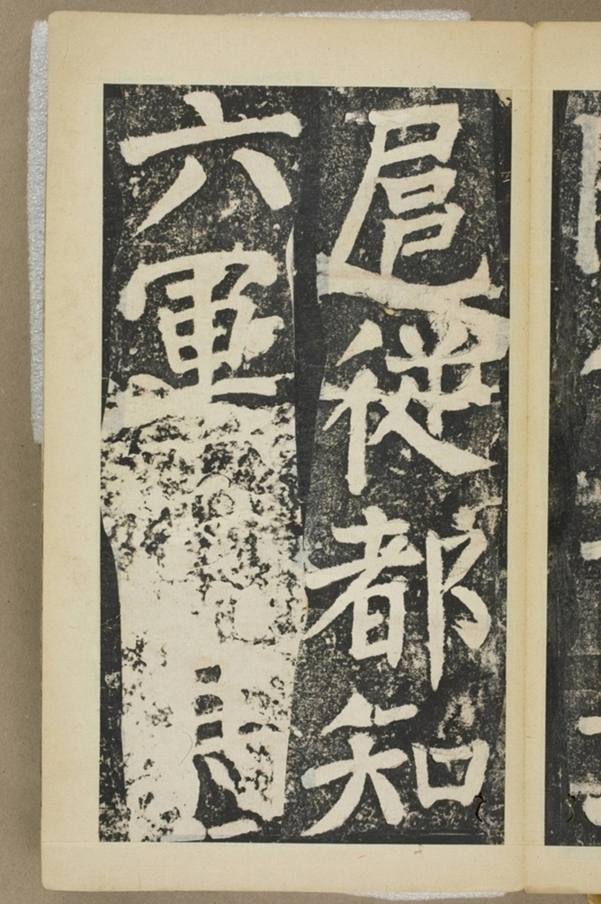 扈從都知
六軍